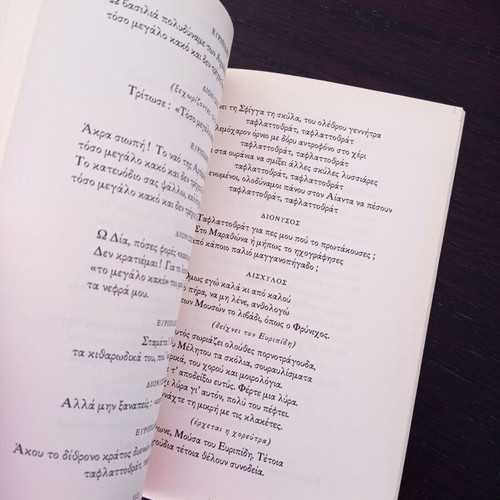 Ω βασιλιά πολυδύναμε των
τόσο μεγάλο κακό και δεν
(ξεχωρίζοντας
Τρίτωσε: «Τόσο μεγάλο
Άκρα σιωπή! Το ναό της
τόσο μεγάλο κακό και δεν
Το κατευόδιο σας ψάλλω,
τόσο μεγάλο κακό και δεν
Ω Δία, πόσες φορές «κακό
Δεν κρατιέμαι! Για το
«το μεγάλο κακό»
τα νεφρά μου.
Σταμάτα!
τα κιθαρωδικά του,
Αλλά μην ξαναπείς:
Άκου το δίθρονο κράτος
ταφλαττοδράτ,
τη Σφίγγα τη σκύλα, του ολέθρου γεννήτρα
ταφλαττοδράτ, ταφλαττοδράτ
όρνιο με δόρυ αντροφόνο στο χέρι
ταφλαττοδράτ, ταφλαττοδράτ
στα ουράνια να σμίξει άλλες σκύλες λυσσιάρες
ταφλαττοδράτ, ταφλαττοδράτ
ενωμένοι, ολοδύναμοι πάνου στον Αίαντα να πέσουν
ταφλαττοδράτ, ταφλαττοδράτ
ΔΙΟΝΥΣΟΣ
Ταφλαττοδράτ για πες μου πού το πρωτάκουσες;
Στο Μαραθώνα ή μήπως το ηχογράφησες
από κάποιο παλιό μαγγανοπήγαδο;
ΑΙΣΧΥΛΟΣ
Όμως εγώ καλά κι από καλού
πήρα, να μη λένε, ανθολογώ
των Μουσών το λιβάδι, όπως ο Φρύνιχος.
(δείχνει τον Ευριπίδη)
σωριάζει ολούθες πορνοτράγουδα,
Μέλητου τα σκόλια, σουραυλίσματα
του χορού και μοιρολόγια.
τ' αποδείξω ευτύς. Φέρτε μια λύρα.
λύρα γι' αυτόν, πολύ του πέφτει.
τη μικρή με τις κλακέτες.
(έρχεται η χορεύτρα)
Μούσα του Ευριπίδη. Τέτοια
τέτοια θέλουν συνοδεία.